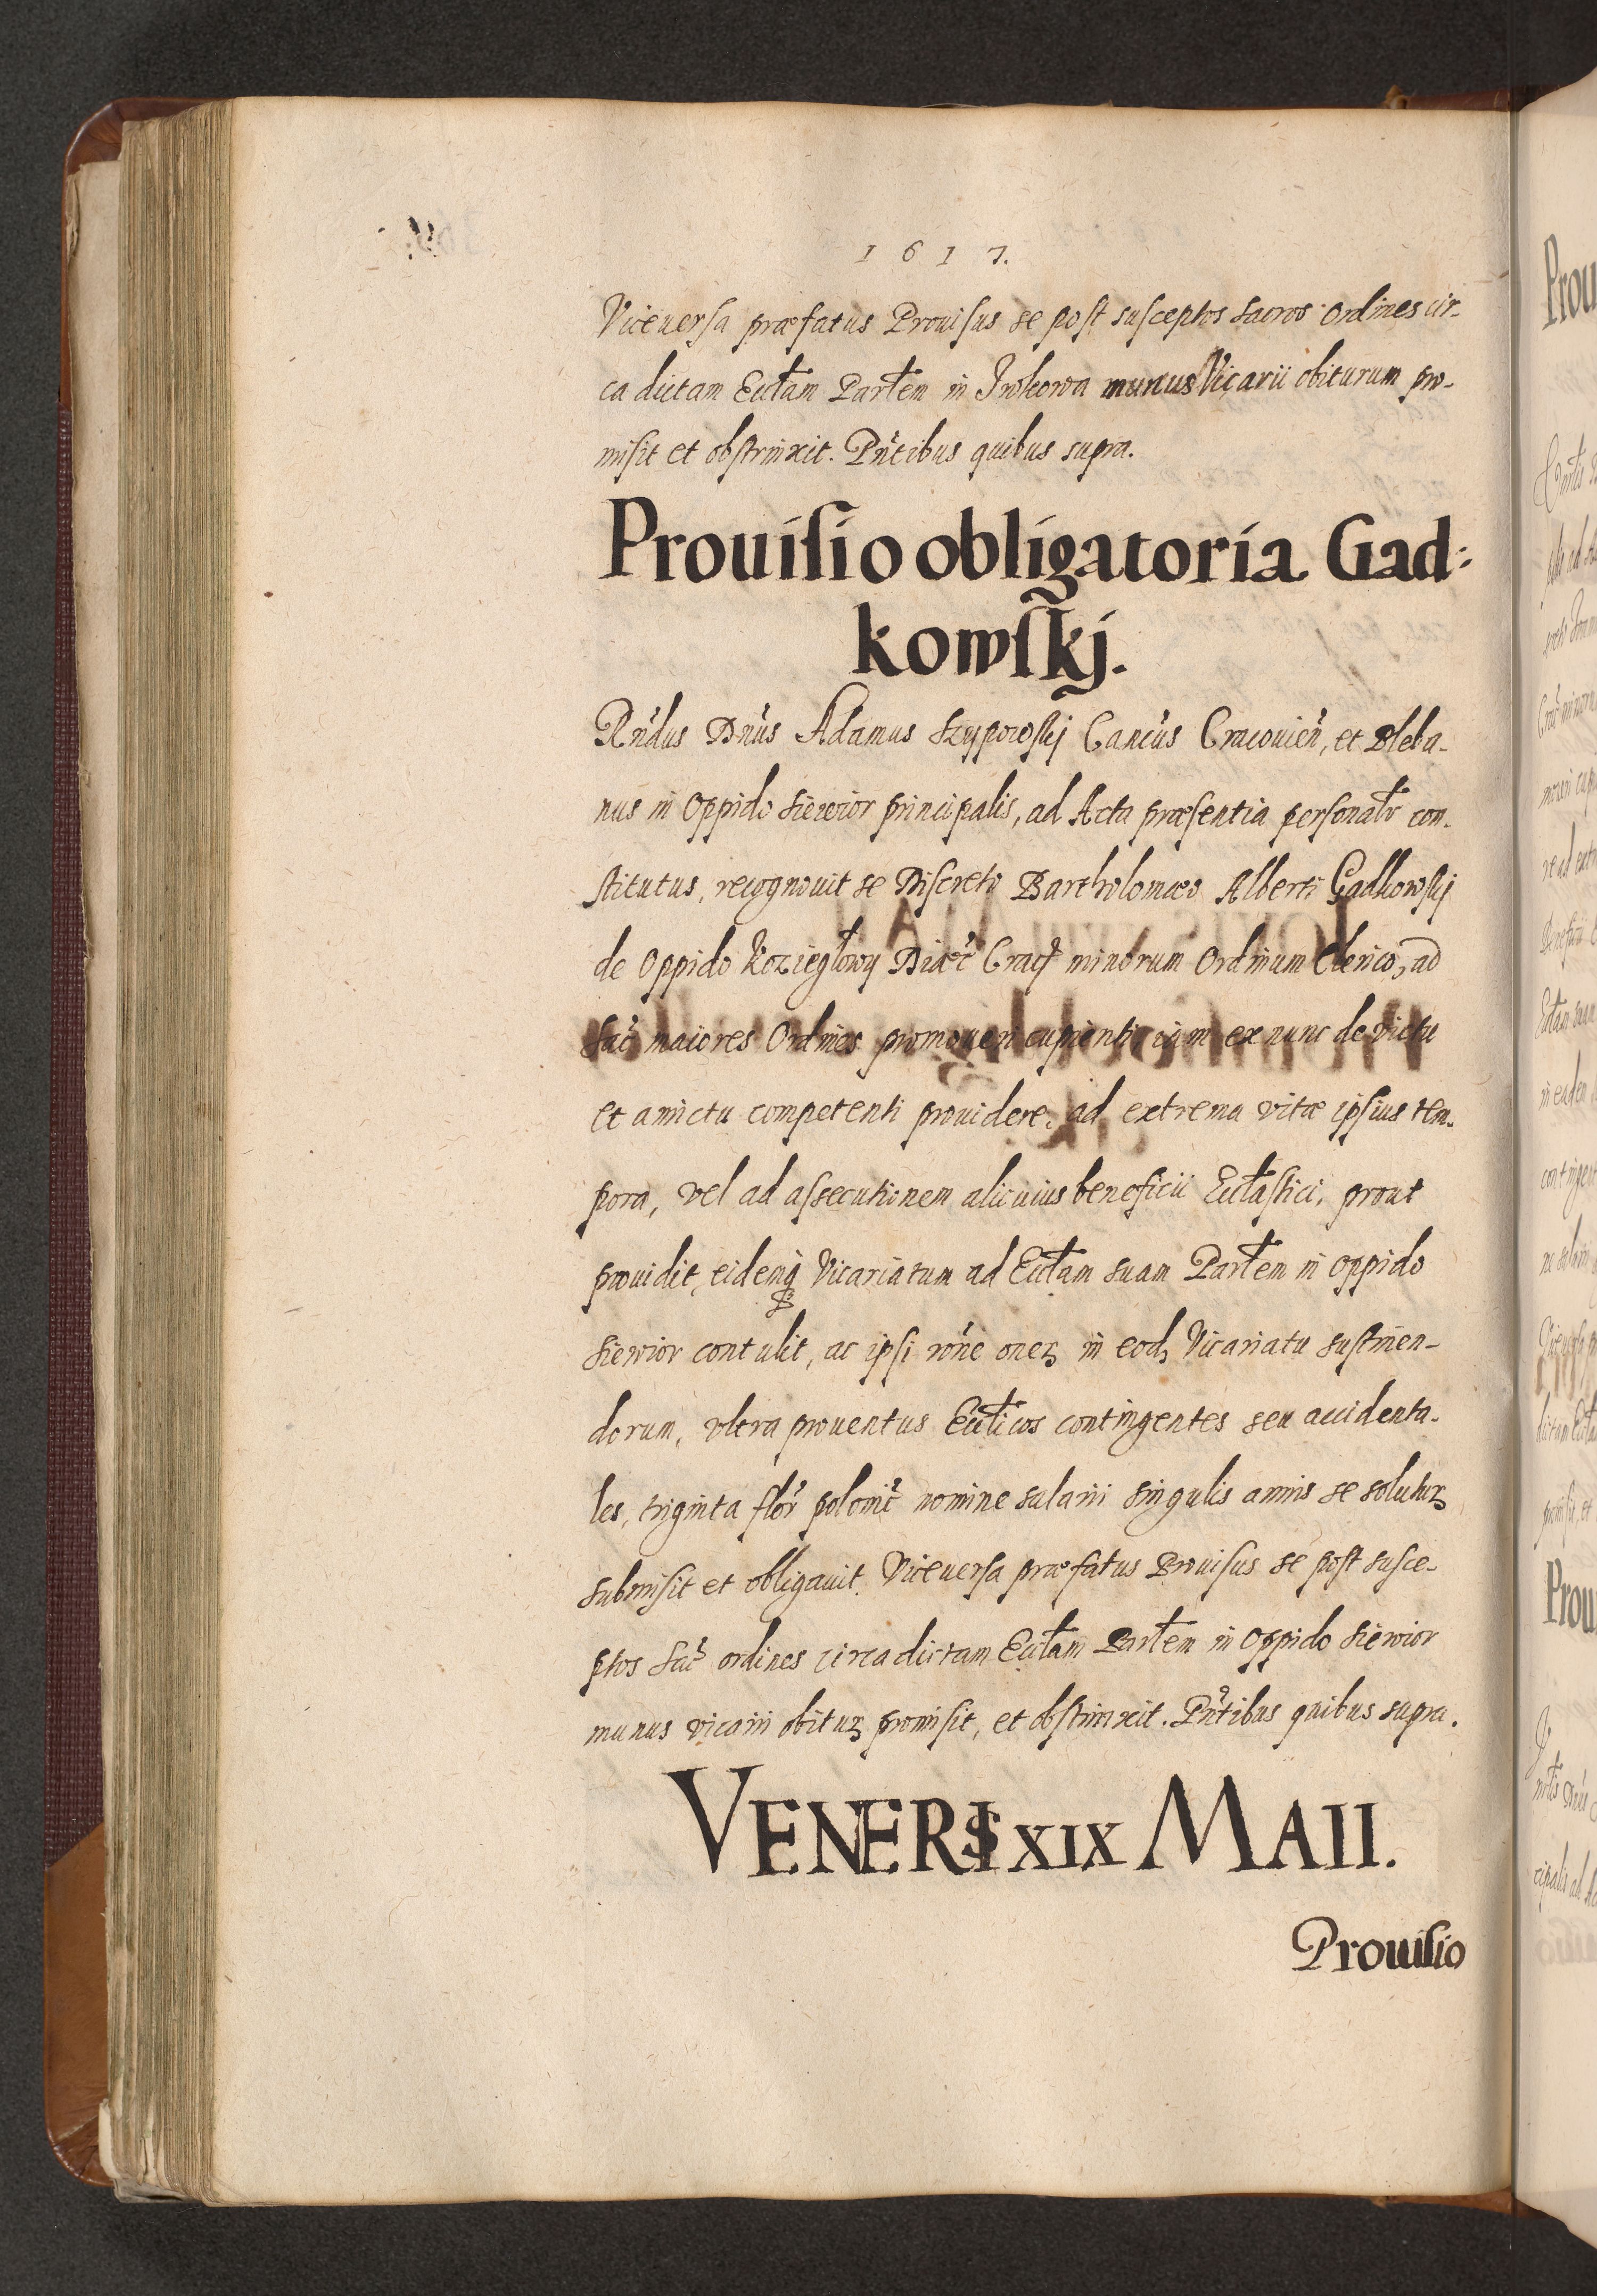 1617.
Viceuersa præfatus Prouisus se post susceptos sacros Ordines cir-
ca dictam Ecctam Partem in Iwkowa munus Vicarii obiturum pro-
misit et obstrinxit. Pntibus quibus supra.
Prouisio obligatoria Gad-
kowskj.
Rndus Dnus Adamus Szypowskj Cancus Cracouien, et Pleba-
nus in Oppido Siewior principalis, ad Acta præsentia personalr con-
stitutus, recognouit se Discreto Bartholomæo Alberti Gadkowskj
de Oppido Koziegłowy Diæc Crac minorum Ordinum Clerico, ad
Sac maiores Ordines promoueri cupienti iam ex nunc de victu
et amictu competenti prouidere, ad extrema vitæ ipsius tem-
pora, vel ad assecutionem alicuius beneficii Ecctastici, prout
prouidit, eidemq Vicariatum ad Ecctam suam Partem in Oppido
Siewior contulit, ac ipsi rone onerz in eod, Vicariatu sustinen-
dorum, vltra prouentus Eccticos contingentes seu accidenta-
les, triginta flor polonic nomine salarii singulis annis se soluturz
submisit et obligauit. Viceuersa præfatus Prouisus se post susce-
ptos Sac ordines circa dictam Ecctam Partem in Oppido Siewior
munus vicarii obiturz promisit, et obstrinxit. Pntibus quibus supra.
VENERIS XIX MAII.
Prouisio